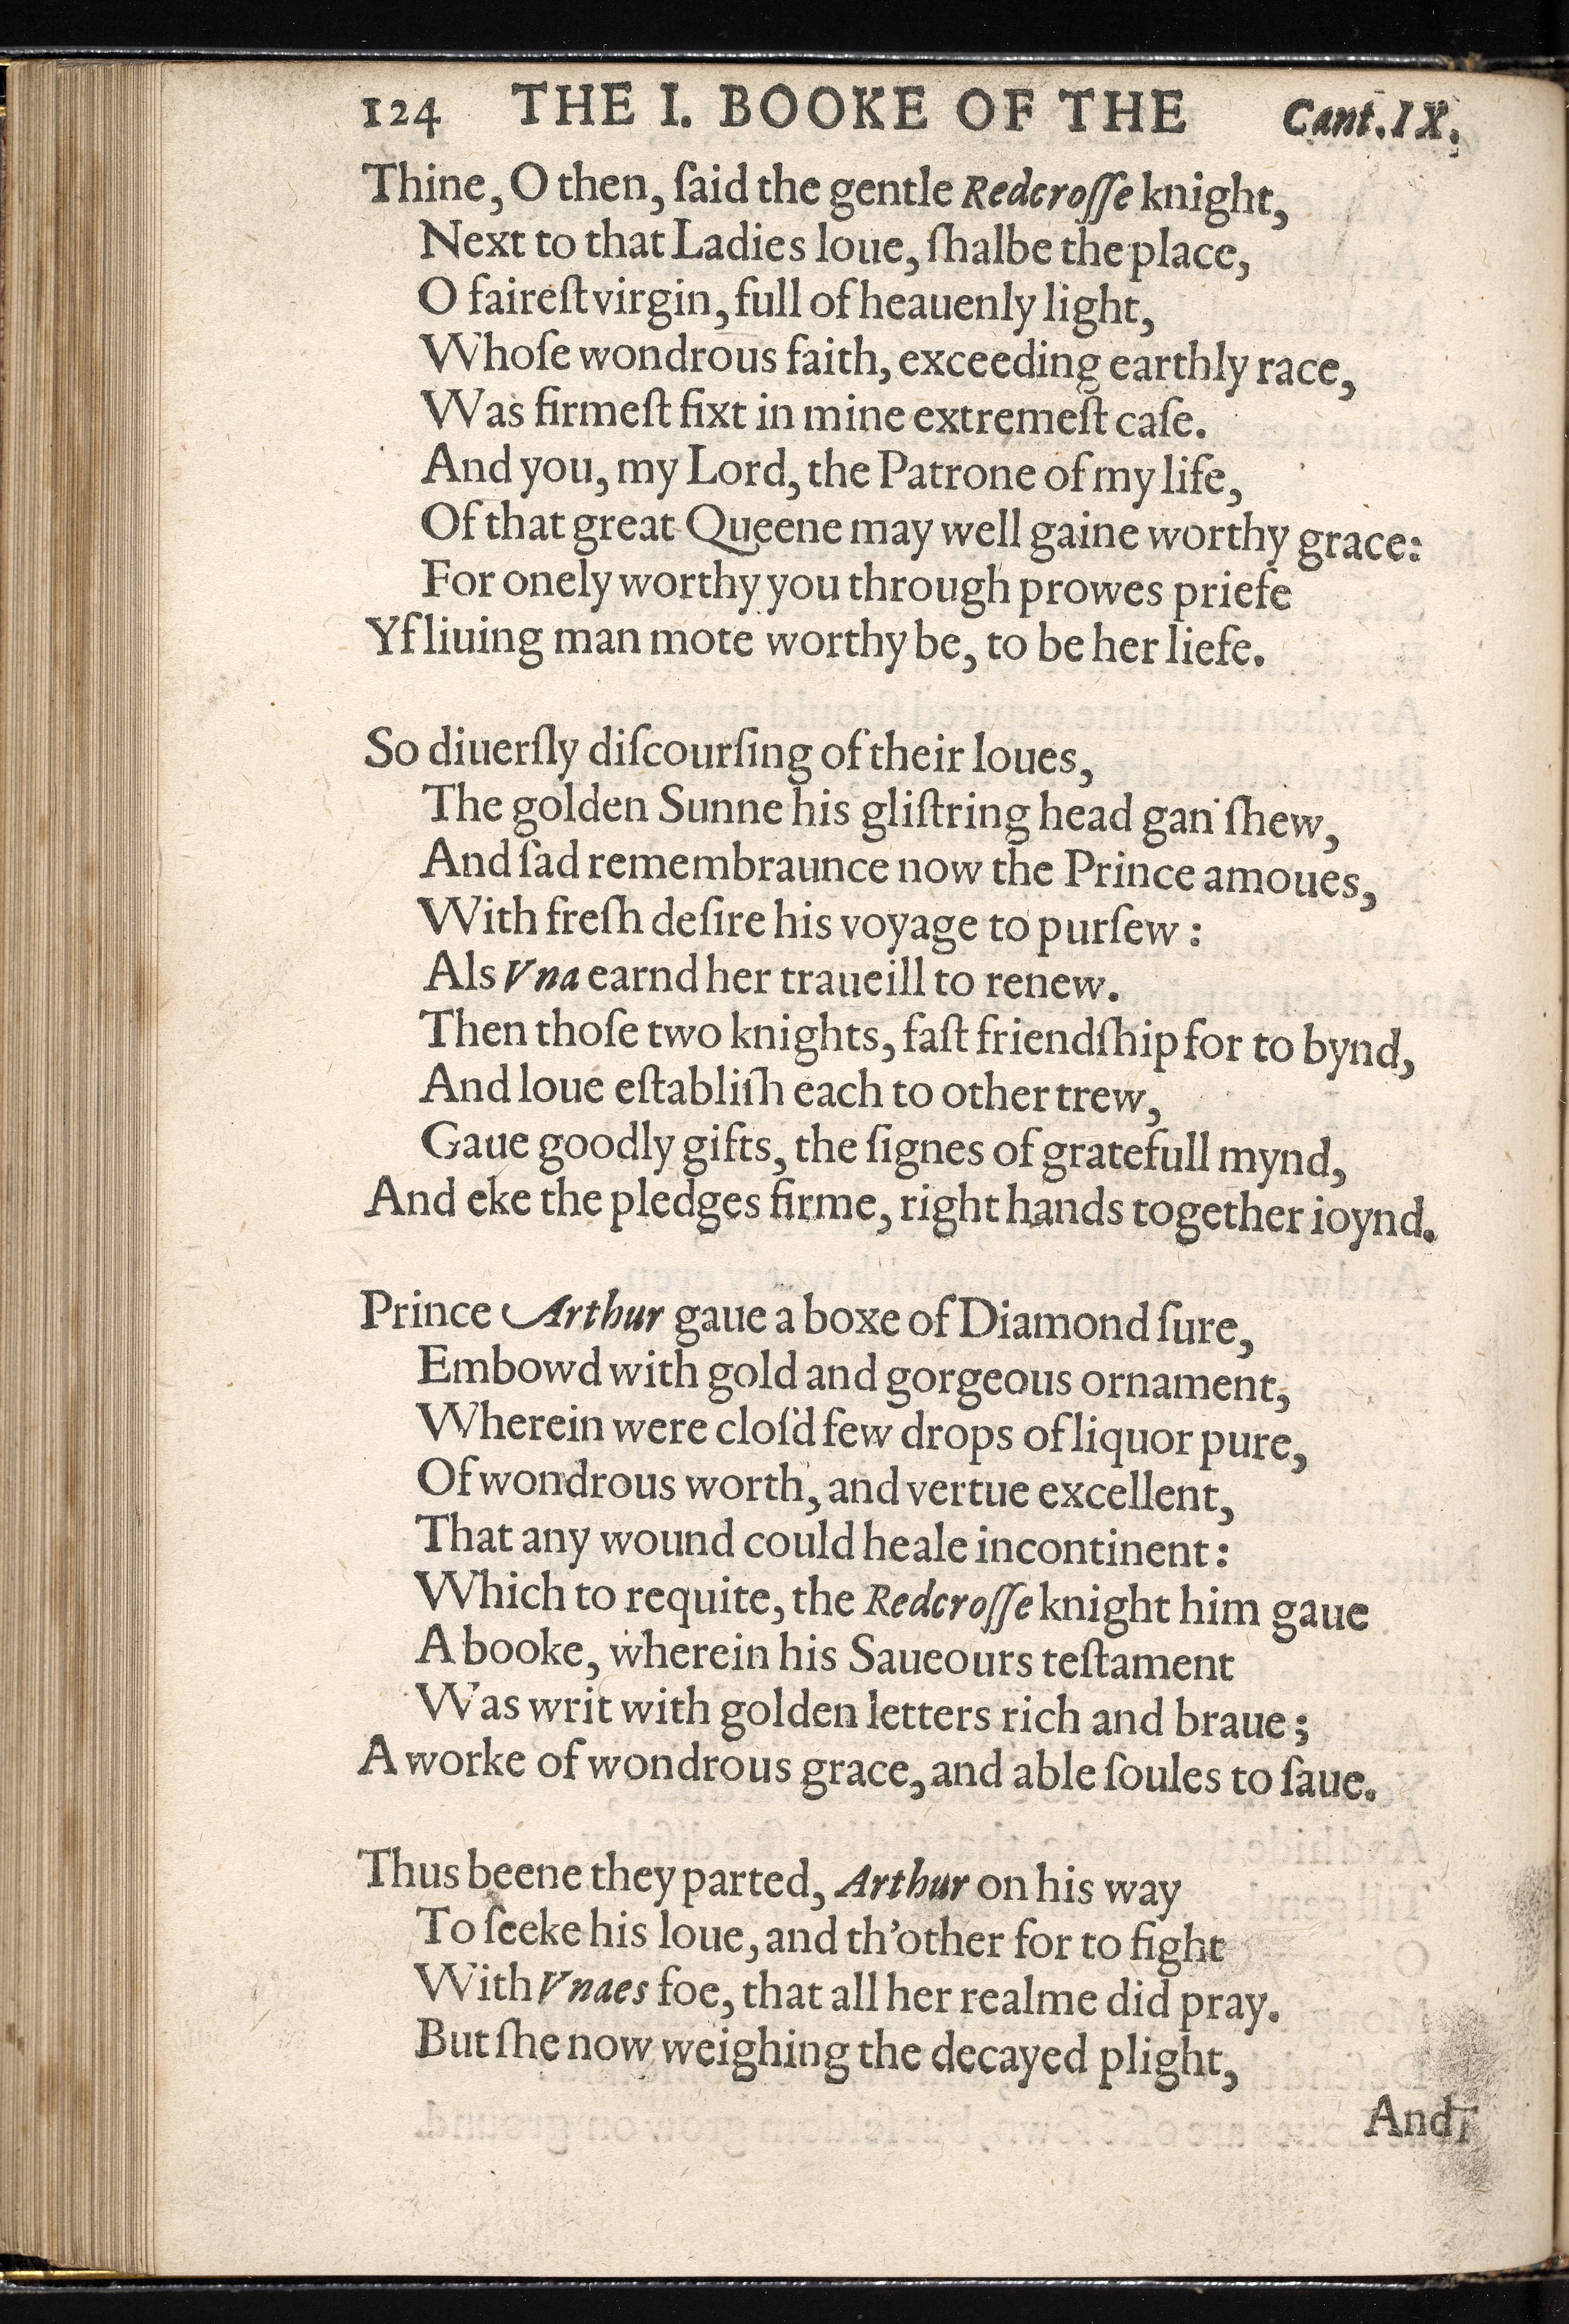 124 THE I. BOOKE OF THE Cant.IX.
Thine, O then, ſaid the gentle Redcroſſe knight,
Next to that Ladies loue, ſhalbe the place,
O faireſt virgin, full of heauenly light,
Whoſe wondrous faith, exceeding earthly race,
Was firmeſt fixt in mine extremeſt caſe.
And you, my Lord, the Patrone of my life,
Of that great Queene may well gaine worthy grace:
For onely worthy you through prowes priefe
Yf liuing man mote worthy be, to be her liefe.
So diuerſly diſcourſing of their loues,
The golden Sunne his gliſtring head gan ſhew,
And ſad remembraunce now the Prince amoues,
With freſh deſire his voyage to purſew:
Als Vna earnd her traueill to renew.
Then thoſe two knights, faſt friendſhip for to bynd,
And loue eſtabliſh each to other trew,
Gaue goodly gifts, the ſignes of gratefull mynd,
And eke the pledges firme, right hands together ioynd.
Prince Arthur gaue a boxe of Diamond ſure,
Embowd with gold and gorgeous ornament,
Wherein were cloſ'd few drops of liquor pure,
Of wondrous worth, and vertue excellent,
That any wound could heale incontinent:
Which to requite, the Redcroſſe knight him gaue
A booke, wherein his Saueours teſtament
Was writ with golden letters rich and braue;
A worke of wondrous grace, and able ſoules to ſaue.
Thus beene they parted, Arthur on his way
To ſeeke his loue, and th'other for to fight
With Vnaes foe, that all her realme did pray.
But ſhe now weighing the decayed plight,
And